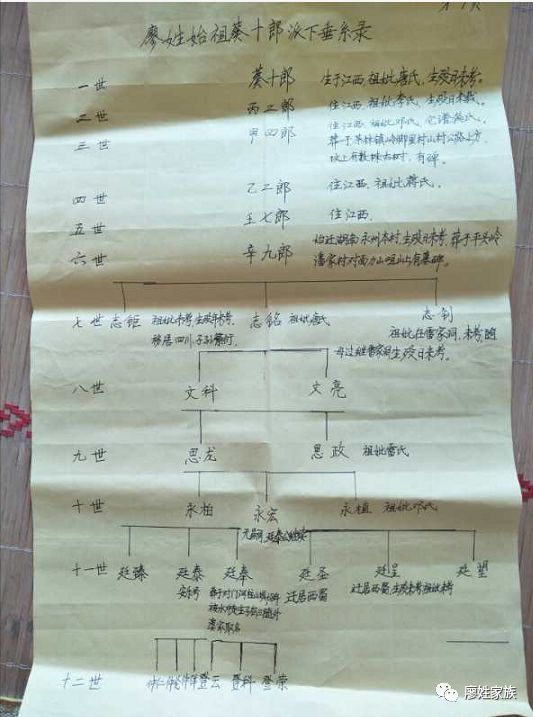 第1页
廖姓始祖葵十郎派下垂系录
一世 葵十郎 生于江西,祖妣唐氏,生殁日未考。
二世 丙二郎 住江西,祖妣李氏,生殁日未载。
三世 甲四郎 住江西,祖妣邓氏,
葬于茶林镇岭脚里村山村公路上方
坟上有数株大树,有碑。
四世 乙二郎 住江西,祖妣蒋氏。
五世 壬七郎 住江西,
六世 辛九郎 始迁湖南永州本村,生殁日未考,葬于平头岭
潘家村对面力山咀山上有墓碑。
七世 志钜 祖妣未考,生殁年未考, 志铭 祖妣 志钊
移居四川,子孙繁衍 祖妣在雷家洞,未考,随
母过继雷家洞生殁日未考。
八世 文科 文亮
九世 思龙 思政 祖妣雷氏
十世 永柏 永宏 永植 祖妣邓氏
十一世 廷臻 廷泰 廷奉 廷圣 廷呈 廷望
迁居西蜀 迁居西蜀,生殁未考祖妣未考
十二世 登云 登科 登荣
廖姓家族